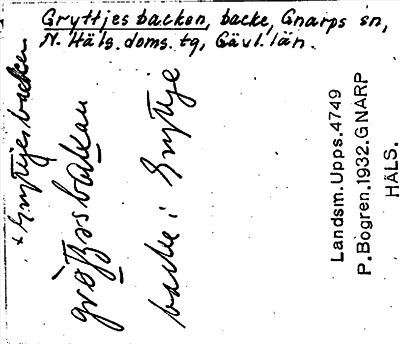 Gryttjesbacken, backe, Gnarps sn,
N. Häls. doms. tg, Gävl. län.
Gryttjesbacken
backe i Gryttje
Landsm. Upps. 4749
P. Bogren. 1932. GNARP
HÄLS.